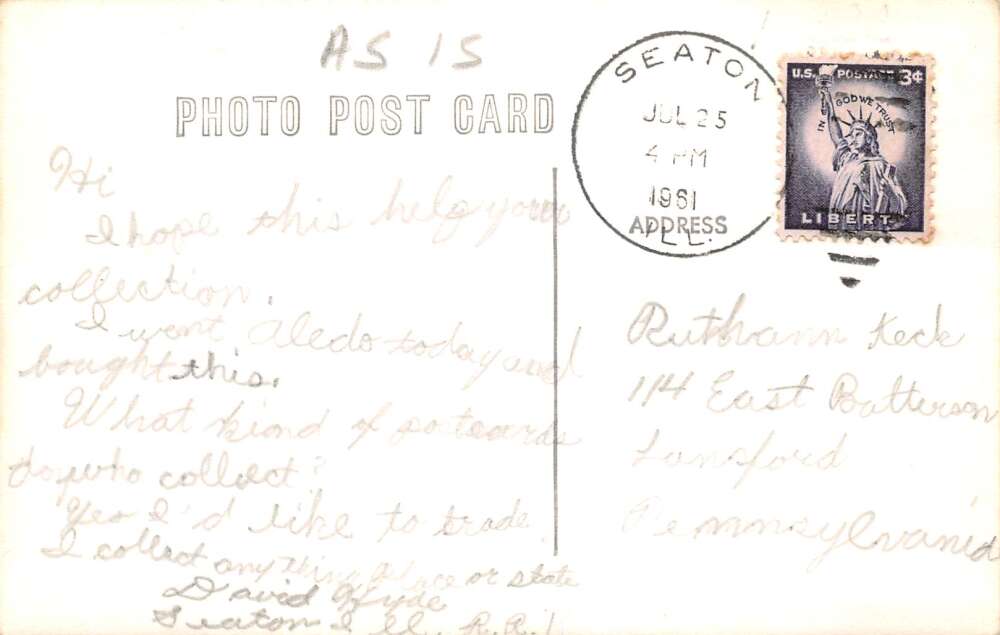 AS IS
PHOTO POST CARD
SEATON
JUL 25
4 PM
1961
ILL.
ADDRESS
U.S. POSTAGE 3¢
IN GOD WE TRUST
LIBERTY
Hi
I hope this help your
collection.
I went Aledo today and
bought this.
What kind of postcards
do collect?
Yes I'd like to trade
I collect any thing place or state
David Hyde
Seaton Ill. R.R.1
Ruthann Keck
114 East Batterson
Lansford
Pennsylvania